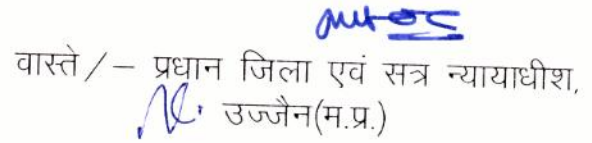 वास्ते/– प्रधान जिला एवं सत्र न्यायाधीश,
उज्जैन(म.प्र.)